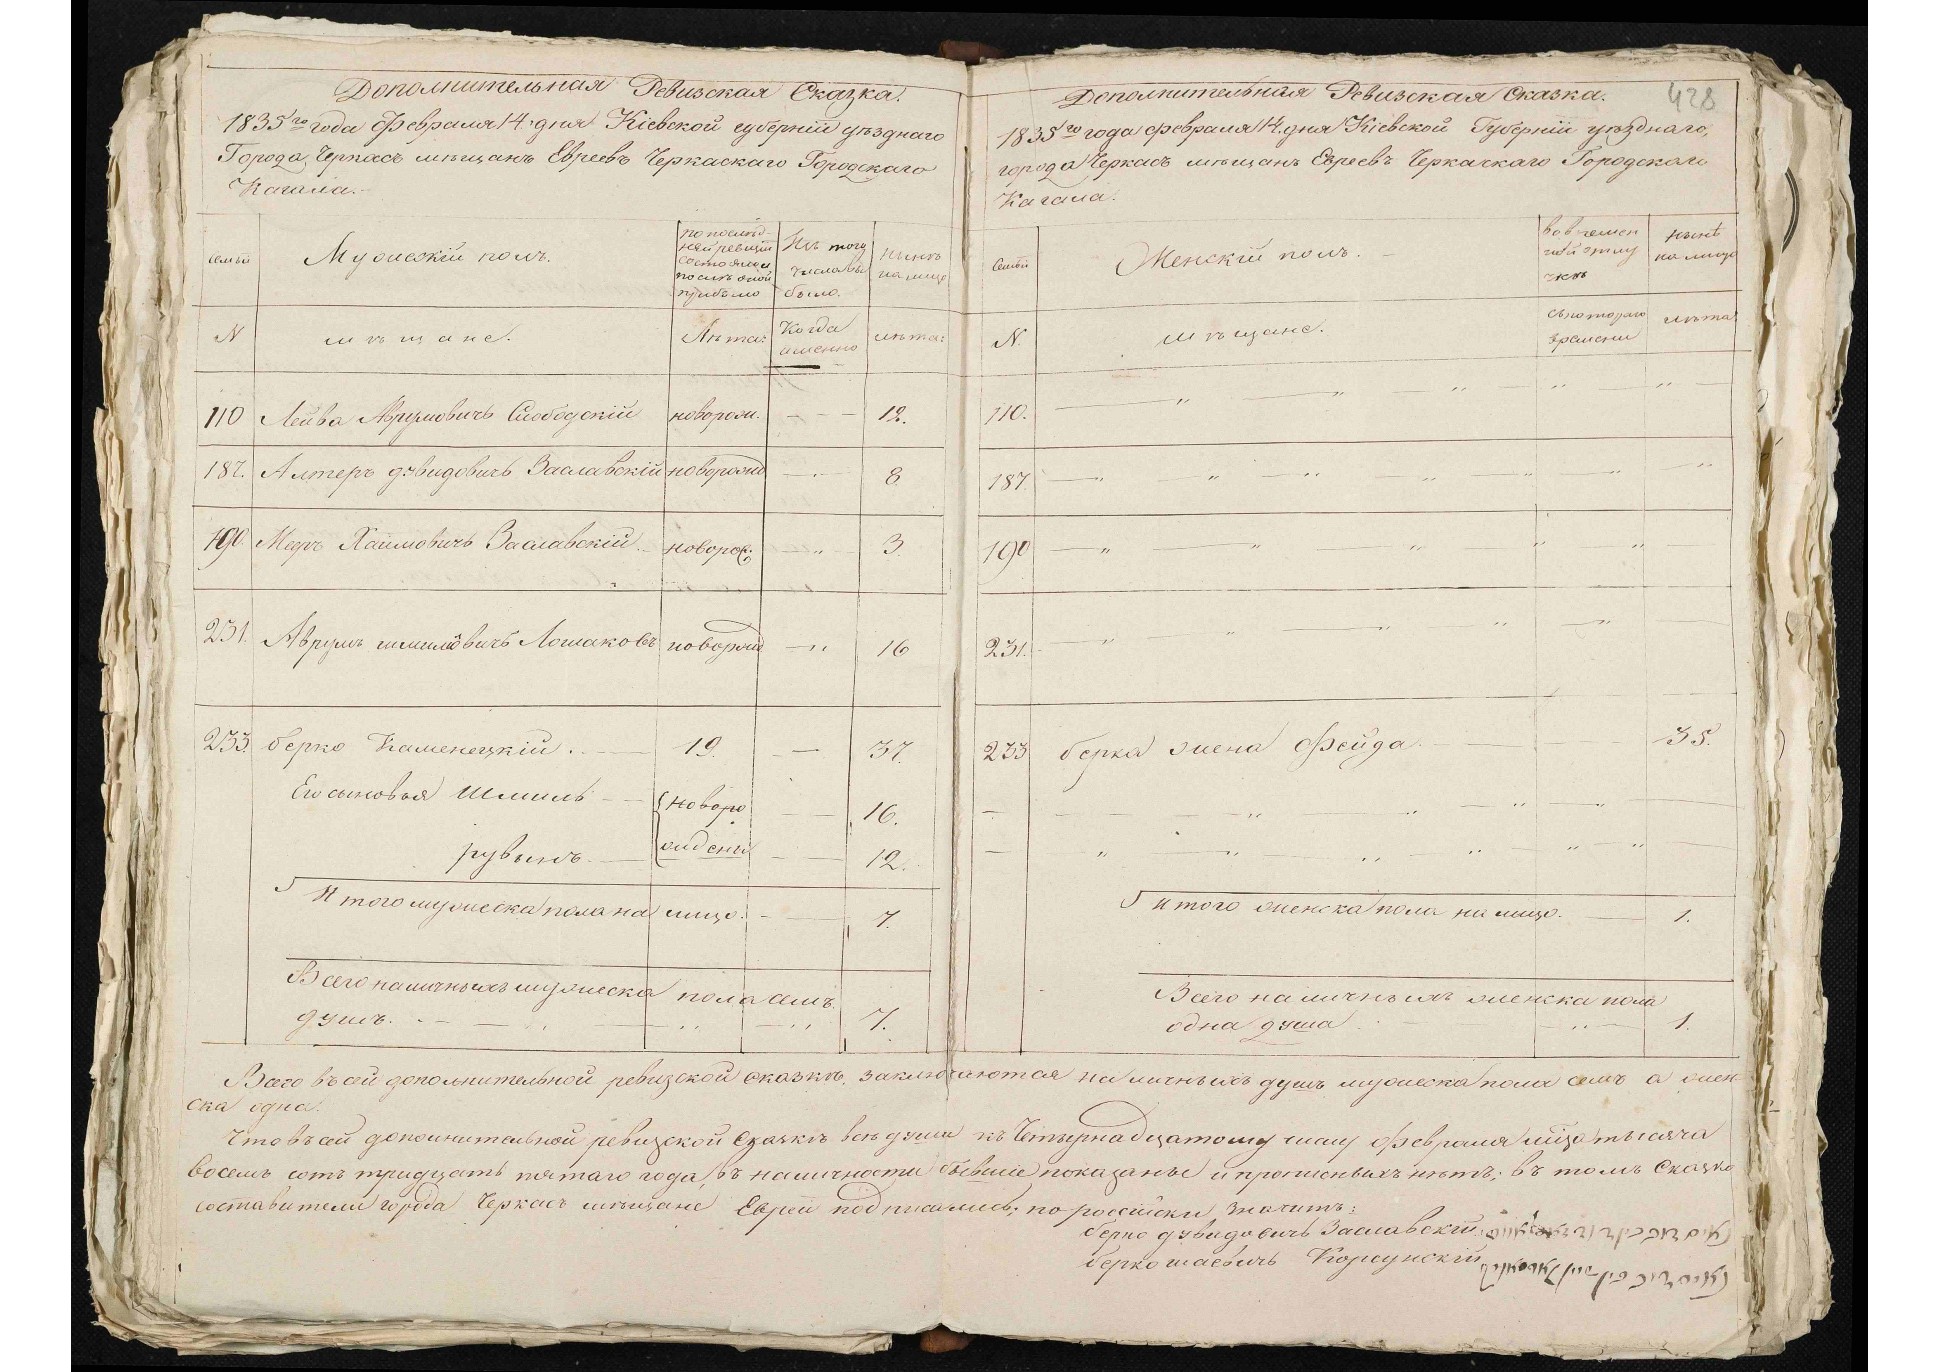 Дополнительная Ревизская Сказка.
1835го года Февраля 14. дня Кіевской губерніи уѣзднаго
Города Черкасъ мѣщанъ Евреевъ Черкаскаго Городскаго
Кагала.
семьи
Мужескій полъ.
по послѣд-
ней ревизіи
состояло и
послѣ оной
прибыло
Изъ того
числа вы
было.
нынѣ
на лицо
N
мѣщане.
Лѣта:
Когда
именно
лѣта:
110 Лейба Аврумовичъ Слободскій новорож. — — 12.
187. Алтеръ дувидовичъ Заславскій новорожд — 8.
190. Мееръ Хаимовичъ Заславскій новорож. — „ — 3.
231. Аврумъ шмилёвичъ Лошаковъ новорожд — „ 16
233. берко Каменецкій. — 19. — 37.
Его сыновья Шмиль — новоро — — 16.
рувынъ — жденн — — 12.
Итого мужеска пола на лицо. — 7.
Всего наличныхъ мужеска пола семь
душъ. — — „ — „ — „ 7.
428
Дополнительная Ревизская Сказка.
1835го года февраля 14. дня Кіевской Губерніи уѣзднаго,
города Черкасъ мѣщанъ Евреевъ Черкаскаго Городскаго
Кагала.
Семьи
Женскій полъ. —
во времен
ной отлу
чкѣ
нынѣ
на лицо
N.
мѣщане.
съ котораго
времени
лѣта
110. — „ — „ — „ — „ — „ —
187. — „ — „ — „ — „ — „ — „ — „
190 — „ — „ — „ — „ — „ —
231. — „ — „ — „ — „ — „ —
233 берка жена Фейда. — — — 35.
— — — „ — „ — „ — „ —
— „ „ „ „ — „ — „
итого женска пола на лицо. — 1.
Всего наличныхъ женска пола
одна душа. — „ — 1.
Всего въ сей дополнительной ревизской сказкѣ, заключаются наличныхъ душъ мужеска пола семь а жен-
ска одна.
Что въ сей дополнительной ревизской Сказкѣ всѣ души къ Четырнадцатому числу февраля мѣсяца тысяча
восемь сотъ тридцать пятаго года, въ наличности бывшие показаны и прописныхъ нѣтъ; въ томъ Сказко
составители города Черкасъ мѣщане Евреи подписались, по российски значитъ:
берко дувидовичъ Заславскій
берко шаевичъ Корсунскій